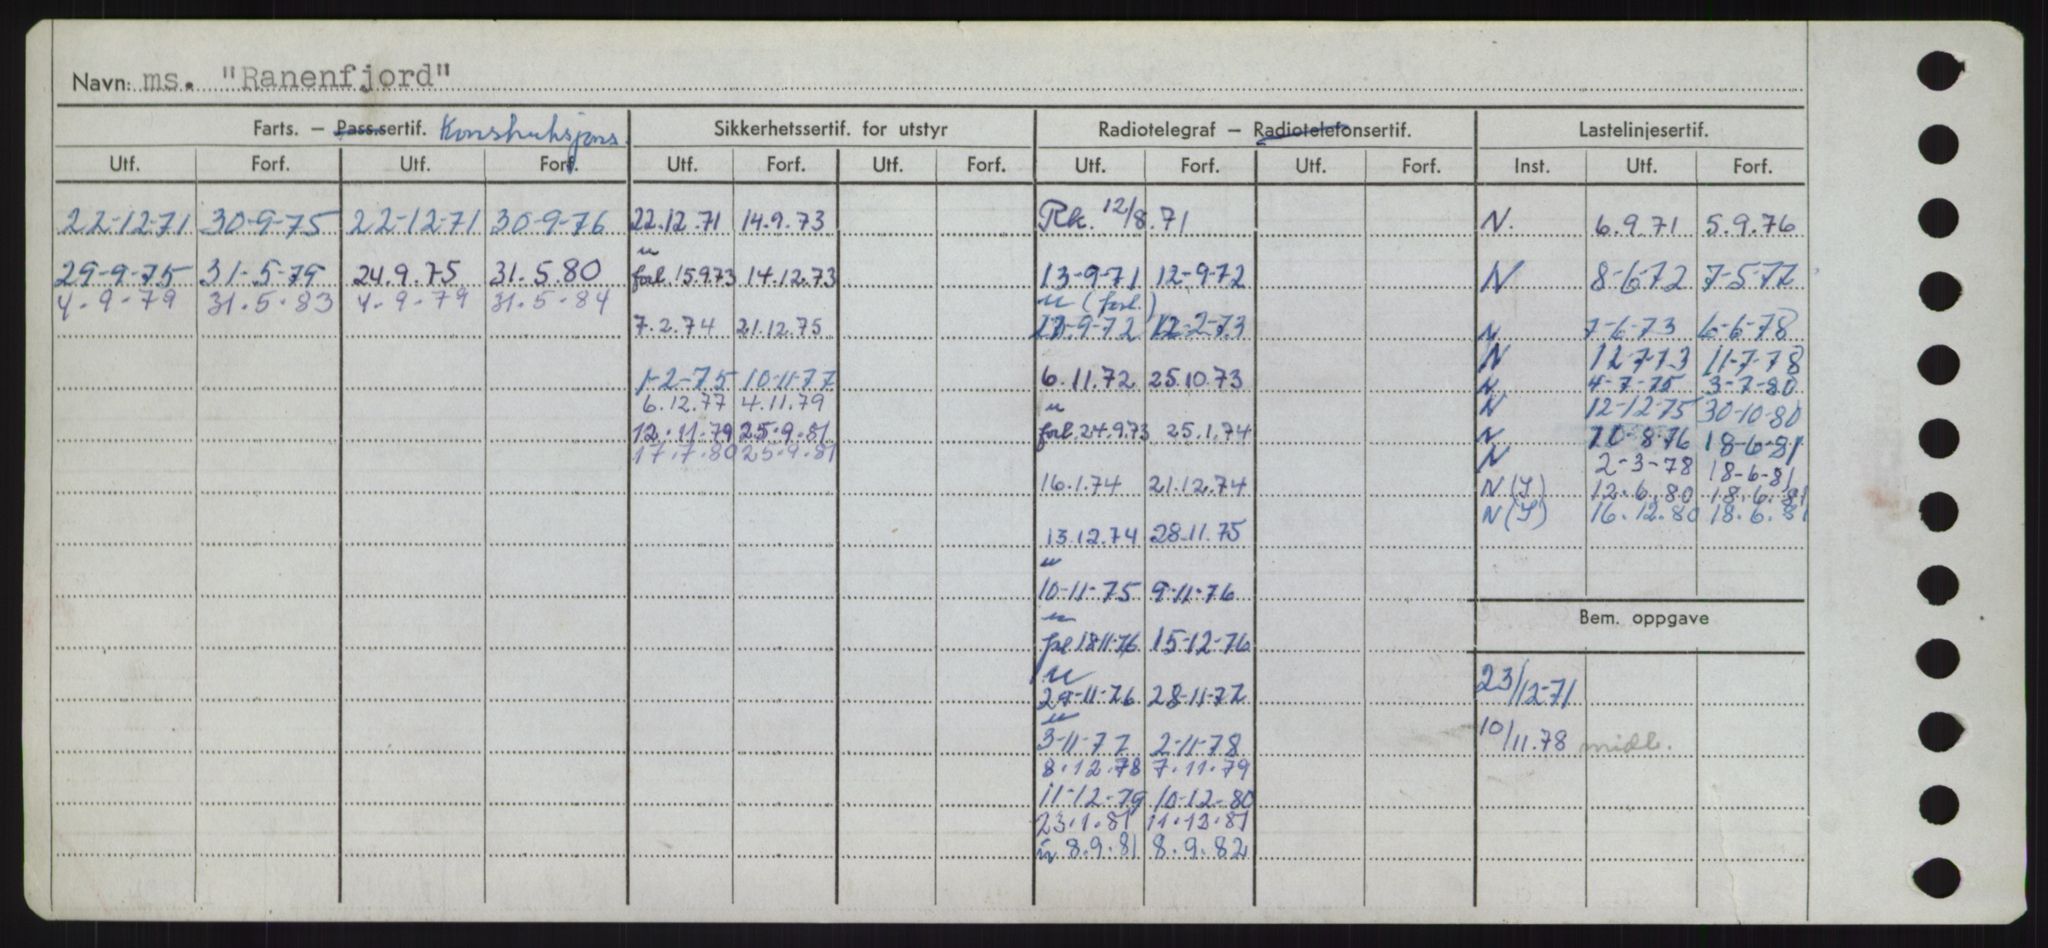 Navn: ms. "Ranenfjord"
Farts. – Pass.sertif. Konstruksjons. Sikkerhetssertif. for utstyr Radiotelegraf – Radiotelefonsertif. Lastelinjesertif.
Utf. Forf. Utf. Forf. Utf. Forf. Utf. Forf. Utf. Forf. Utf. Forf. Inst. Utf. Forf.
22-12-71 30-9-75 22-12-71 30-9-76 22.12.71 14.9.73 Rk. 12/8.71 N. 6.9.71 5.9.76
u
29-9-75 31-5-79 24.9.75 31.5.80 forl. 15.9.73 14.12.73 13-9-71 12-9-72 N 8-6-72 7-5-77
4-9-79 31.5.83 4-9-79 31.5.84 u (forl.)
7.2.74 21.12.75 9-72 12-2-73 N 7-6-73 6-6-78
N 12-7-73 11-7-78
1-2-75 10-11-77 6.11.72 25.10.73 N 4-7-75 3-7-80
6.12.77 4.11.79 u N 12-12-75 30-10-80
12.11.79 25.9.81 forl. 24.9.73 25.1.74 N 10-8-76 18-6-81
17.7.80 25.9.81 N 2-3-78 18-6-81
16.1.74 21.12.74 N (S) 12.6.80 18.6.81
N (S) 16.12.80 18.6.81
13.12.74 28.11.75
u
10-11-75 9-11-76
u Bem. oppgave
forl. 18-11-76 15-12-76
u
29-11-76 28-11-77 23/12-71
u
3-11-77 2-11-78 10/11.78 midl.
8.12.78 7.11.79
11-12-79 10-12-80
23.1.81 11.12.81
u 8.9.81 8.9.82